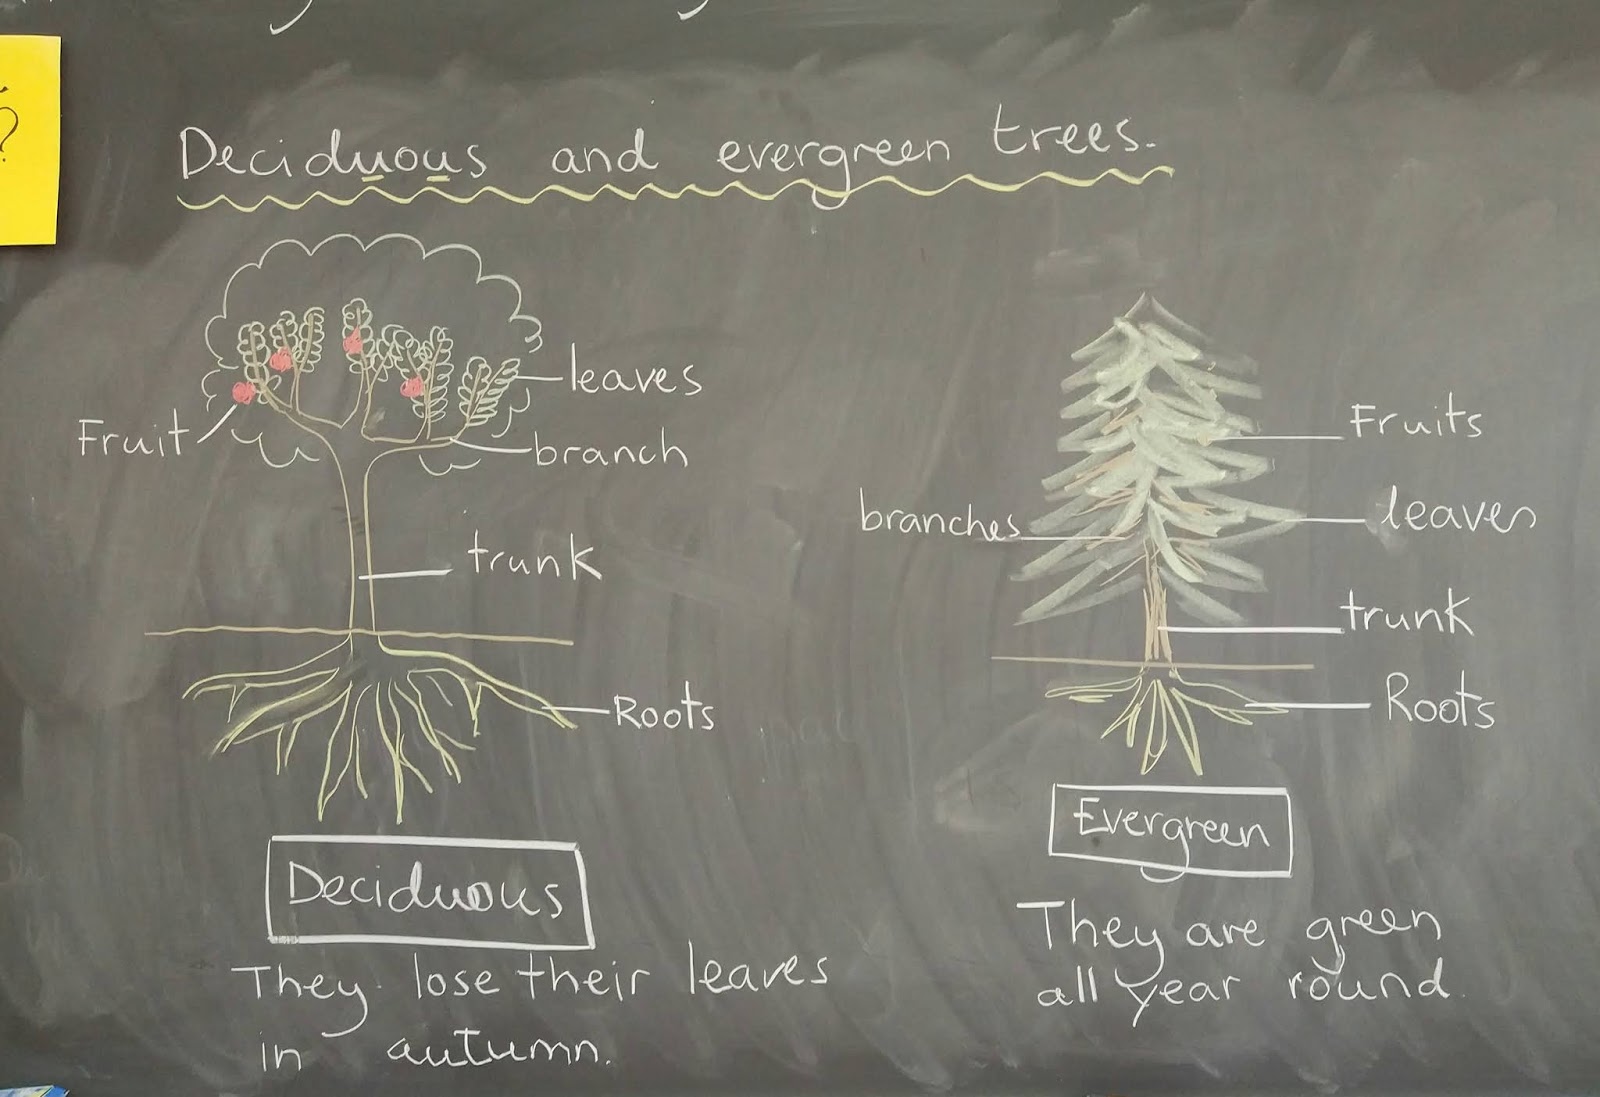 ?
Deciduous and evergreen trees.
leaves
Fruit
branch
trunk
Roots
Deciduous
They lose their leaves
in autumn.
Fruits
branches
leaves
trunk
Roots
Evergreen
They are green
all year round